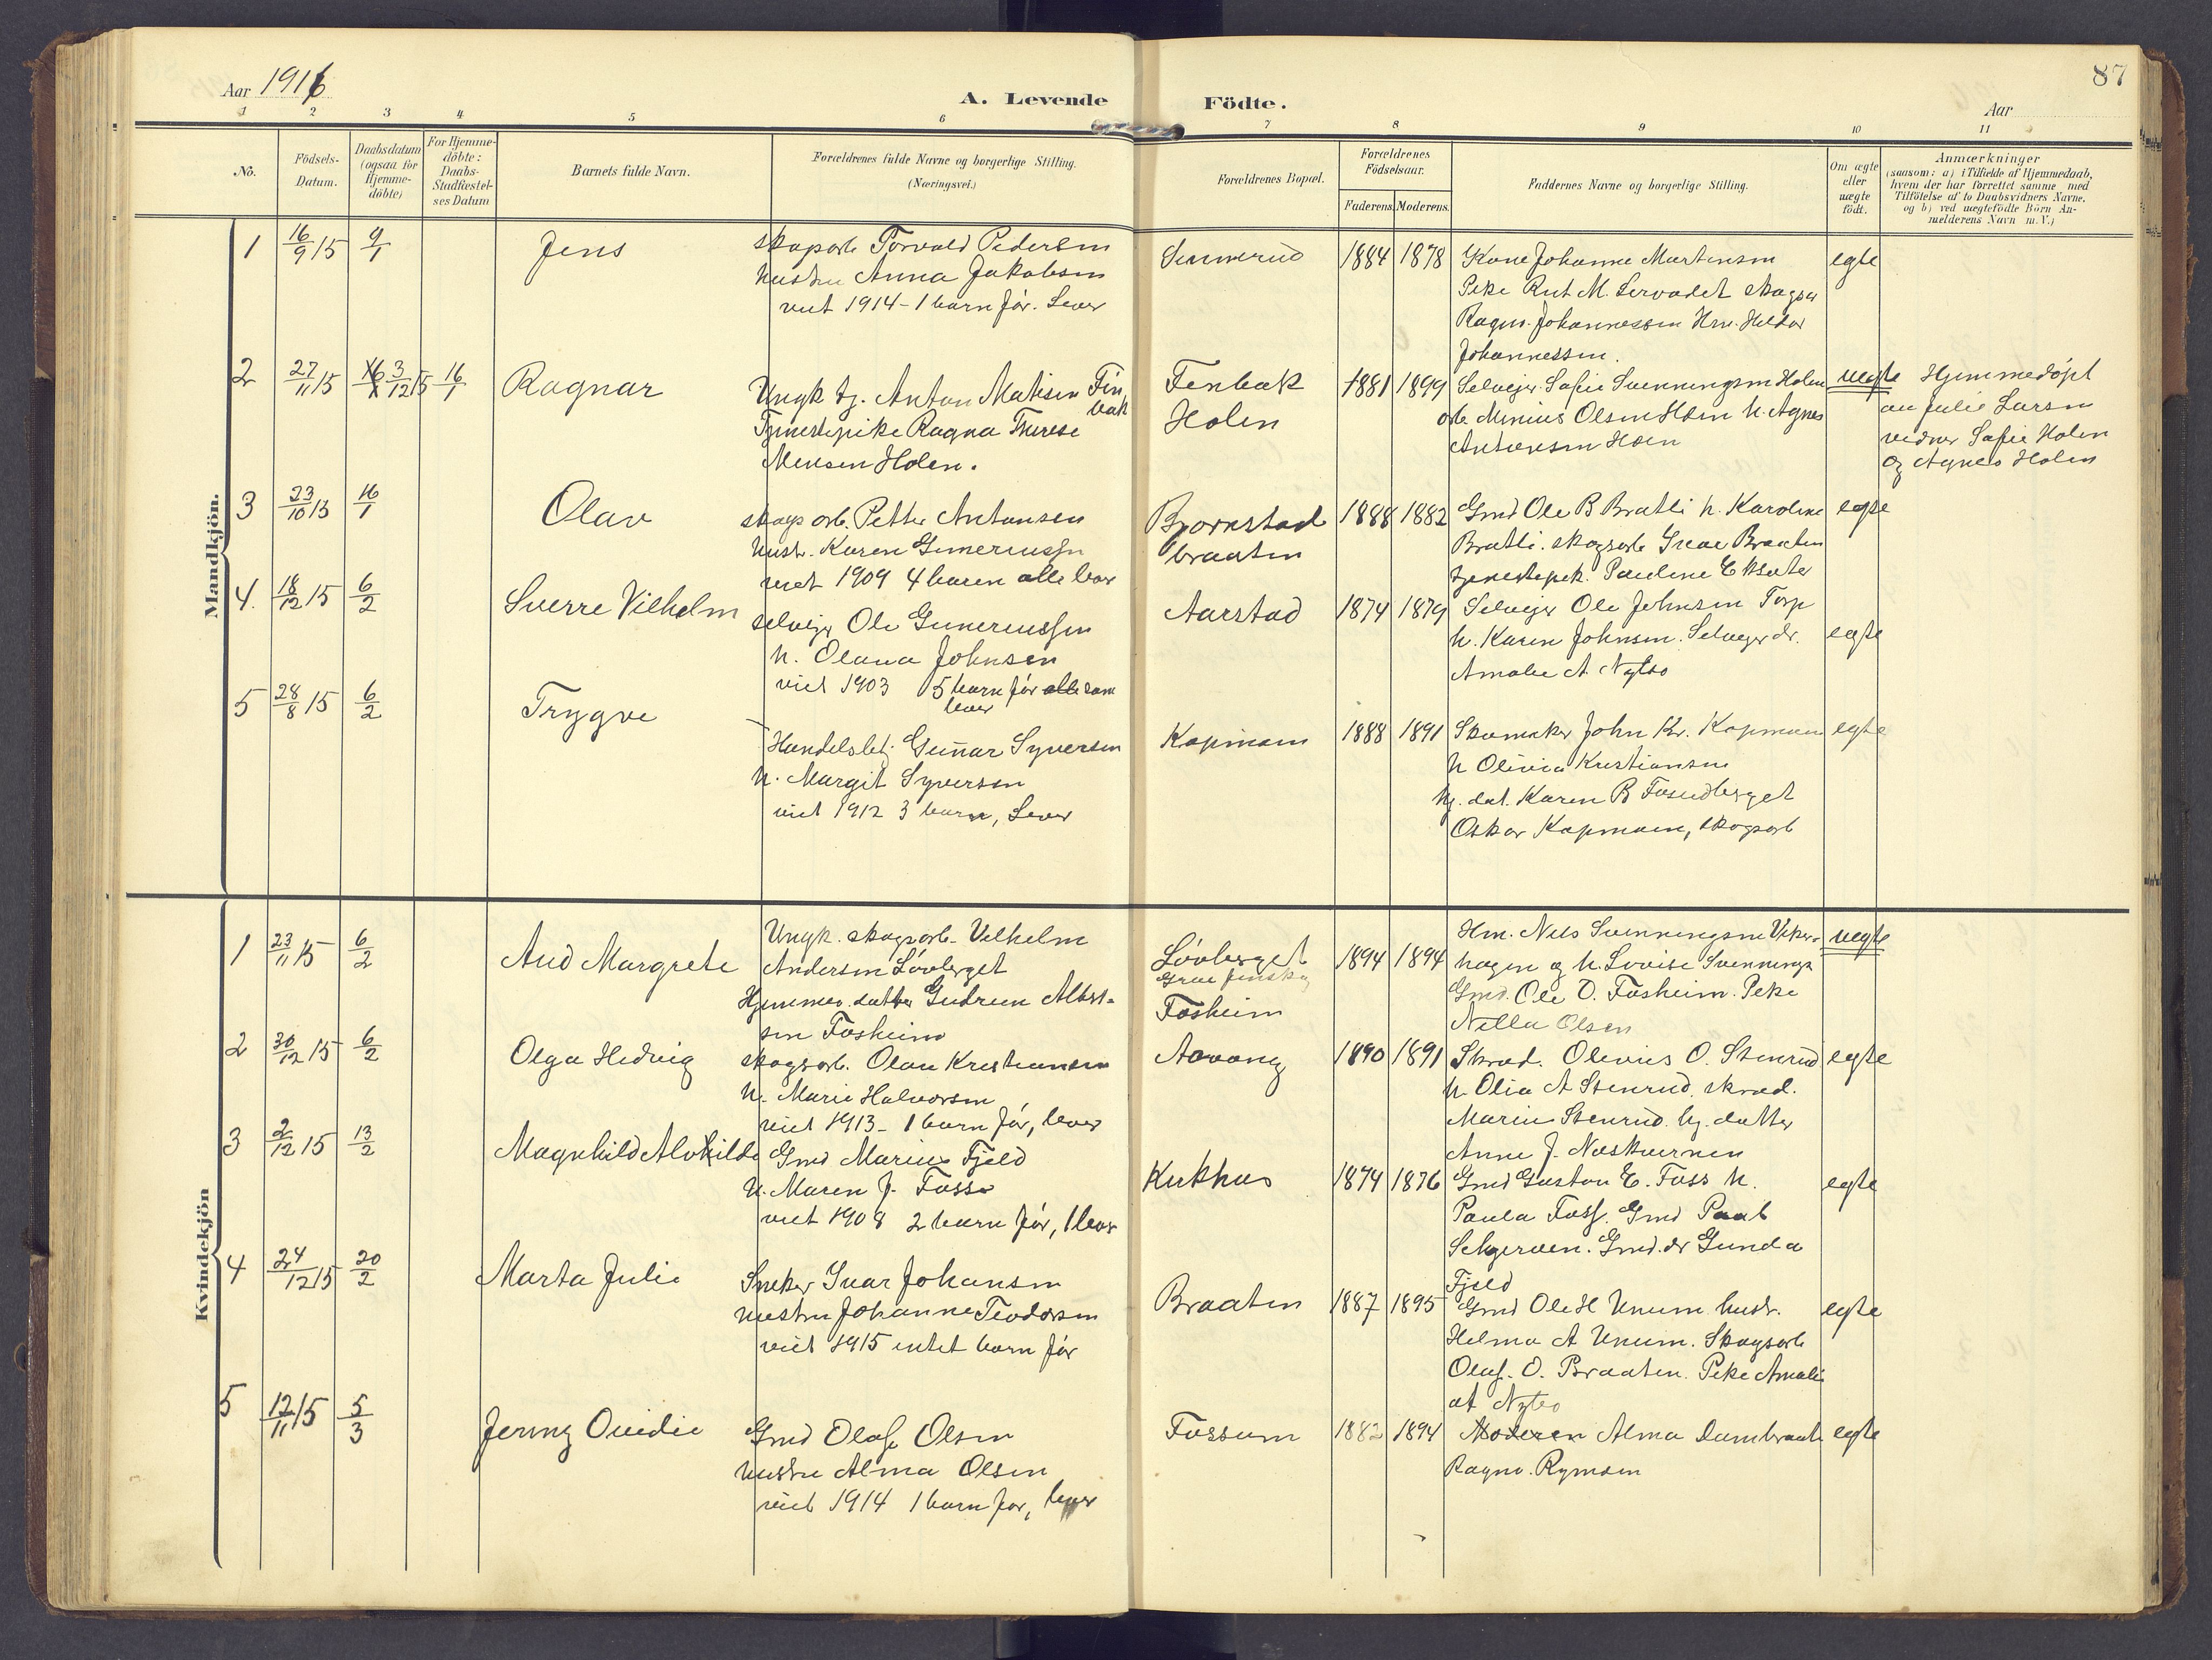 Aar 1916
A. Levende Födte.
87
Aar
1 2 3 4 5 6 7 8 9 10 11
No.
Födsels-Datum.
Daabsdatum (ogsaa for Hjemme-döbte)
For Hjemme-döbte: Daabs-Stadfæstel-ses Datum
Barnets fulde Navn.
Forældrenes fulde Navne og borgerlige Stilling. (Næringsvei.)
Forældrenes Bopæl.
Forældrenes Födselsaar.
Faderens. Moderens.
Faddernes Navne og borgerlige Stilling.
Om ægte eller uægte födt.
Anmærkninger
(saasom: a) i Tilfælde af Hjemmedaab,
hvem der har forrettet samme med
Tilföielse af to Daabsvidners Navne,
og b) ved uægtefödte Börn An-
melderens Navn m. V.)
Mandkjön.
1 16/9 15 9/1 Jens
skogarb Torvald Pedersen
hustru Anna Jakobsen
viet 1914 - 1 barn før. Lever
Sinnerud 1884 1878
Kone Johanne Martinsen
Peke Rut M. Servadet skogsar
Ragn. Johannessen Hm. Heldor
Johannessen.
egte
2 27/11 15 16/1 3/12 15 16/1 Ragnar
Ungk tj. Anton Matisen Fin
bak
Tjenestepike Ragna Therese
Mensen Holen.
Finbak 1881 1899
Holen
Selvejer Sofie Svenningsen Holen
arb. Minius Olsen Holen h. Agnes
Antonsen Holen
uegte
Hjemmedøpt
av Julie Larsen
vidner Sofie Holen
og Agnes Holen
3 23/10 15 16/1 Olav
skogs arb. Petter Antonsen
hust. Karen Gunerussen
viet 1909 4 baren alle lever
Bjørnstad 1888 1882
braaten
Gmd Ole B Bratli h. Karoline
Bratli. skogsarb Ivar Braaten
tjenestepik. Pauline Eksæter
egte
4. 18/12 15 6/2 Sverre Vilhelm
selvejer Ole Gunerussen
h. Olava Johnsen
viet 1903 5 barn før alle som
lever
Aarstad 1874 1879
Selvejer Ole Johnsen Torp
h. Karen Johnsen. Selvejer dr.
Amalie A. Nyteo
egte
5 28/8 15 6/2 Trygve
Handelsbetj. Gunnar Syversen
h. Margit Syversen
viet 1912 3 barn, Lever
Kopmoen 1888 1891
Skomaker John Kr. Kopmoen
h Olivia Kristiansen
hj. dat. Karen B Fosudberget
Oskar Kopmoen, skogsarb
egte
Kvindekjön
1 23/11 15 6/2 Aud Margrete
Ungk. skogsarb. Vilhelm
Andersen Løvberget
Hjemmev. datter Gudrun Albert-
sen Fosheim
Løvberget 1894 1894
Grue Finskog
Fosheim
Hm. Nils Svenningsen Viker-
hagen og h. Lovise Svennings
Gmd. Ole O. Fosheim. Peke
Nilla Olsen
uegte
2 30/12 15 6/2 Olga Hedvig
skogsarb. Olav Kristiansen
h. Marie Halvorsen
viet 1913 - 1 barn før, lever
Aavang 1890 1891
Skræd. Olenius O. Stenrud
h. Olia A Stenrud. skræd.
Marius Stenrud. hj. datter
Anne J. Næskvernen
egte
3 2/12 15 13/2 Magnhild Alvhilde
Gmd Marius Fjeld
h. Maren J. Foss
viet 1908 2 barn før, 1 lever
Kukhus 1874 1876
Gmd Gustav E. Foss h.
Paula Foss. Gmd Paal
Selgerven. Gmd. dr Gunda
Fjeld
egte
4 24/12 15 20/2 Marta Julie
Sneker Ivar Johansen
hustru Johanne Teodorsen
viet 1915 intet barn før
Braaten 1887 1895
Gmd Ole H Unum hustr.
Helma A Unum. Skogsarb
Olaf. O. Braaten. Peke Amalie
A Nyteo
egte
5 12/11 15 5/3 Jenny Ovidie
Gmd Olaf Olsen
hustru Alma Olsen
viet 1914 1 barn før, lever
Fossum 1882 1894
Moderen Alma Dambraate
Ragnv. Rymoen
egte